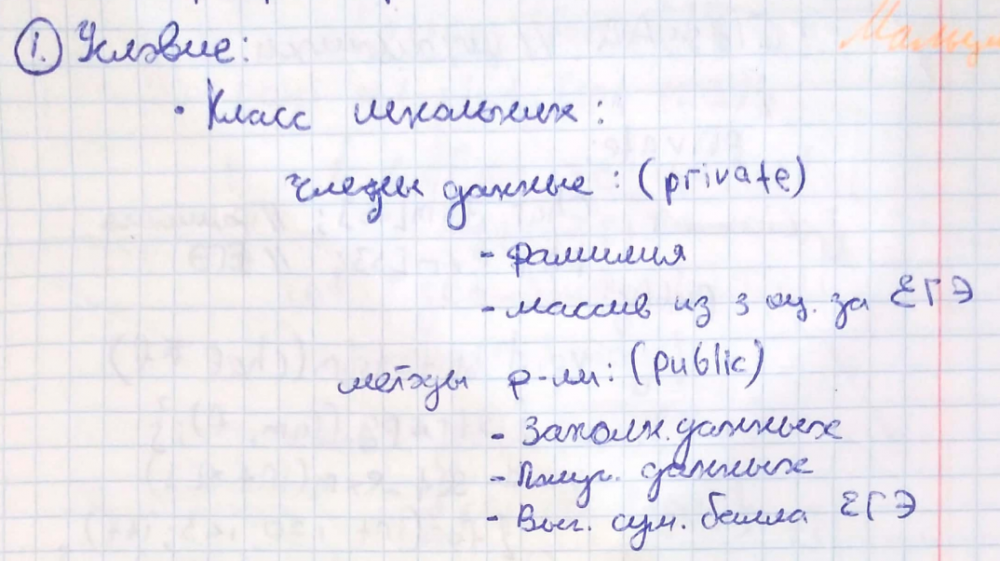 1. Условие:
• Класс школьник:
члены данные: (private)
- фамилия
- массив из 3 оц. за ЕГЭ
методы ф-ии: (public)
- Заполн. данных
- данных
- Выч. сум. балла ЕГЭ